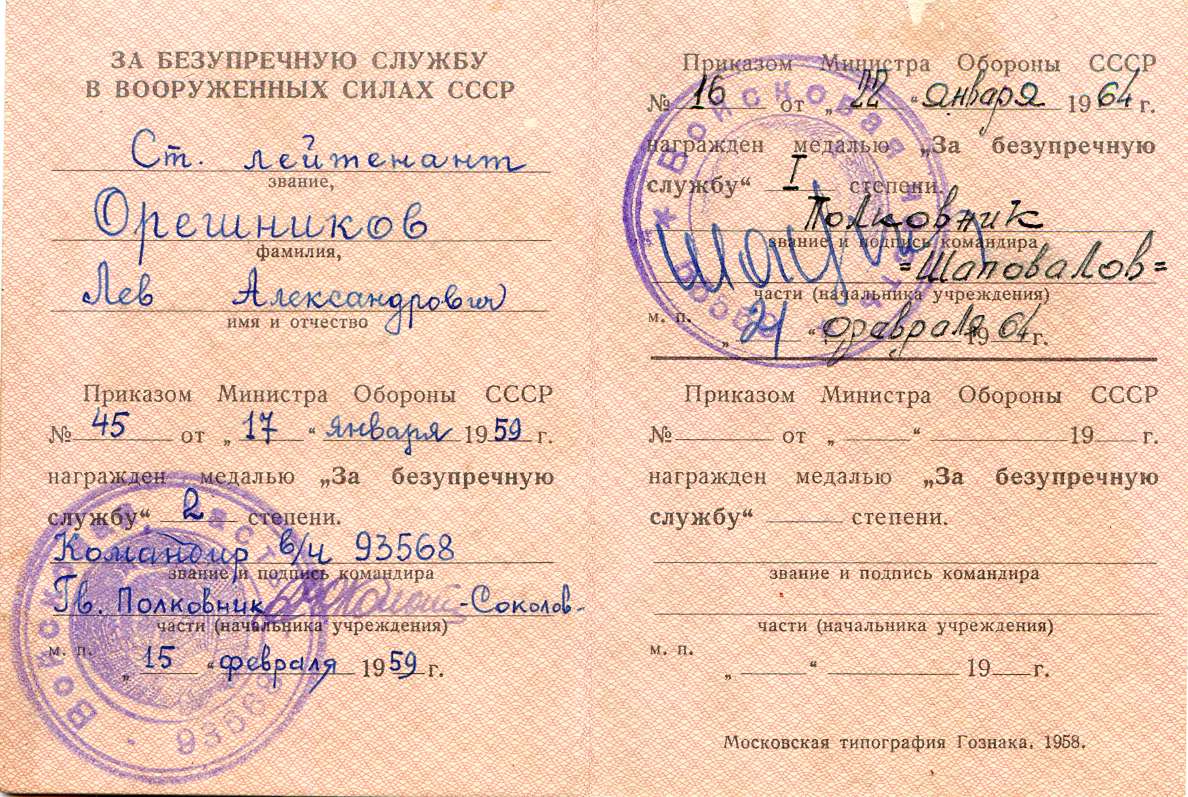 ЗА БЕЗУПРЕЧНУЮ СЛУЖБУ
В ВООРУЖЕННЫХ СИЛАХ СССР
Ст. лейтенант
звание,
Орешников
фамилия,
Лев Александрович
имя и отчество
Приказом Министра Обороны СССР
№ 45 от „ 17 “ января 1959 г.
награжден медалью „За безупречную
службу“ 2 степени.
Командир в/ч 93568
звание и подпись командира
Гв. Полковник -Соколов-
части (начальника учреждения)
м. п.
„ 15 “ февраля 1959 г.
Войсковая часть 93568
Приказом Министра Обороны СССР
№ 16 от „ 22 “ января 1964 г.
награжден медалью „За безупречную
службу“ I степени.
Полковник
звание и подпись командира
=Шаповалов=
части (начальника учреждения)
м. п.
„ 21 “ февраля 1964 г.
Войсковая часть
Приказом Министра Обороны СССР
№ от „ “ 19 г.
награжден медалью „За безупречную
службу“ степени.
звание и подпись командира
части (начальника учреждения)
м. п.
„ “ 19 г.
Московская типография Гознака. 1958.